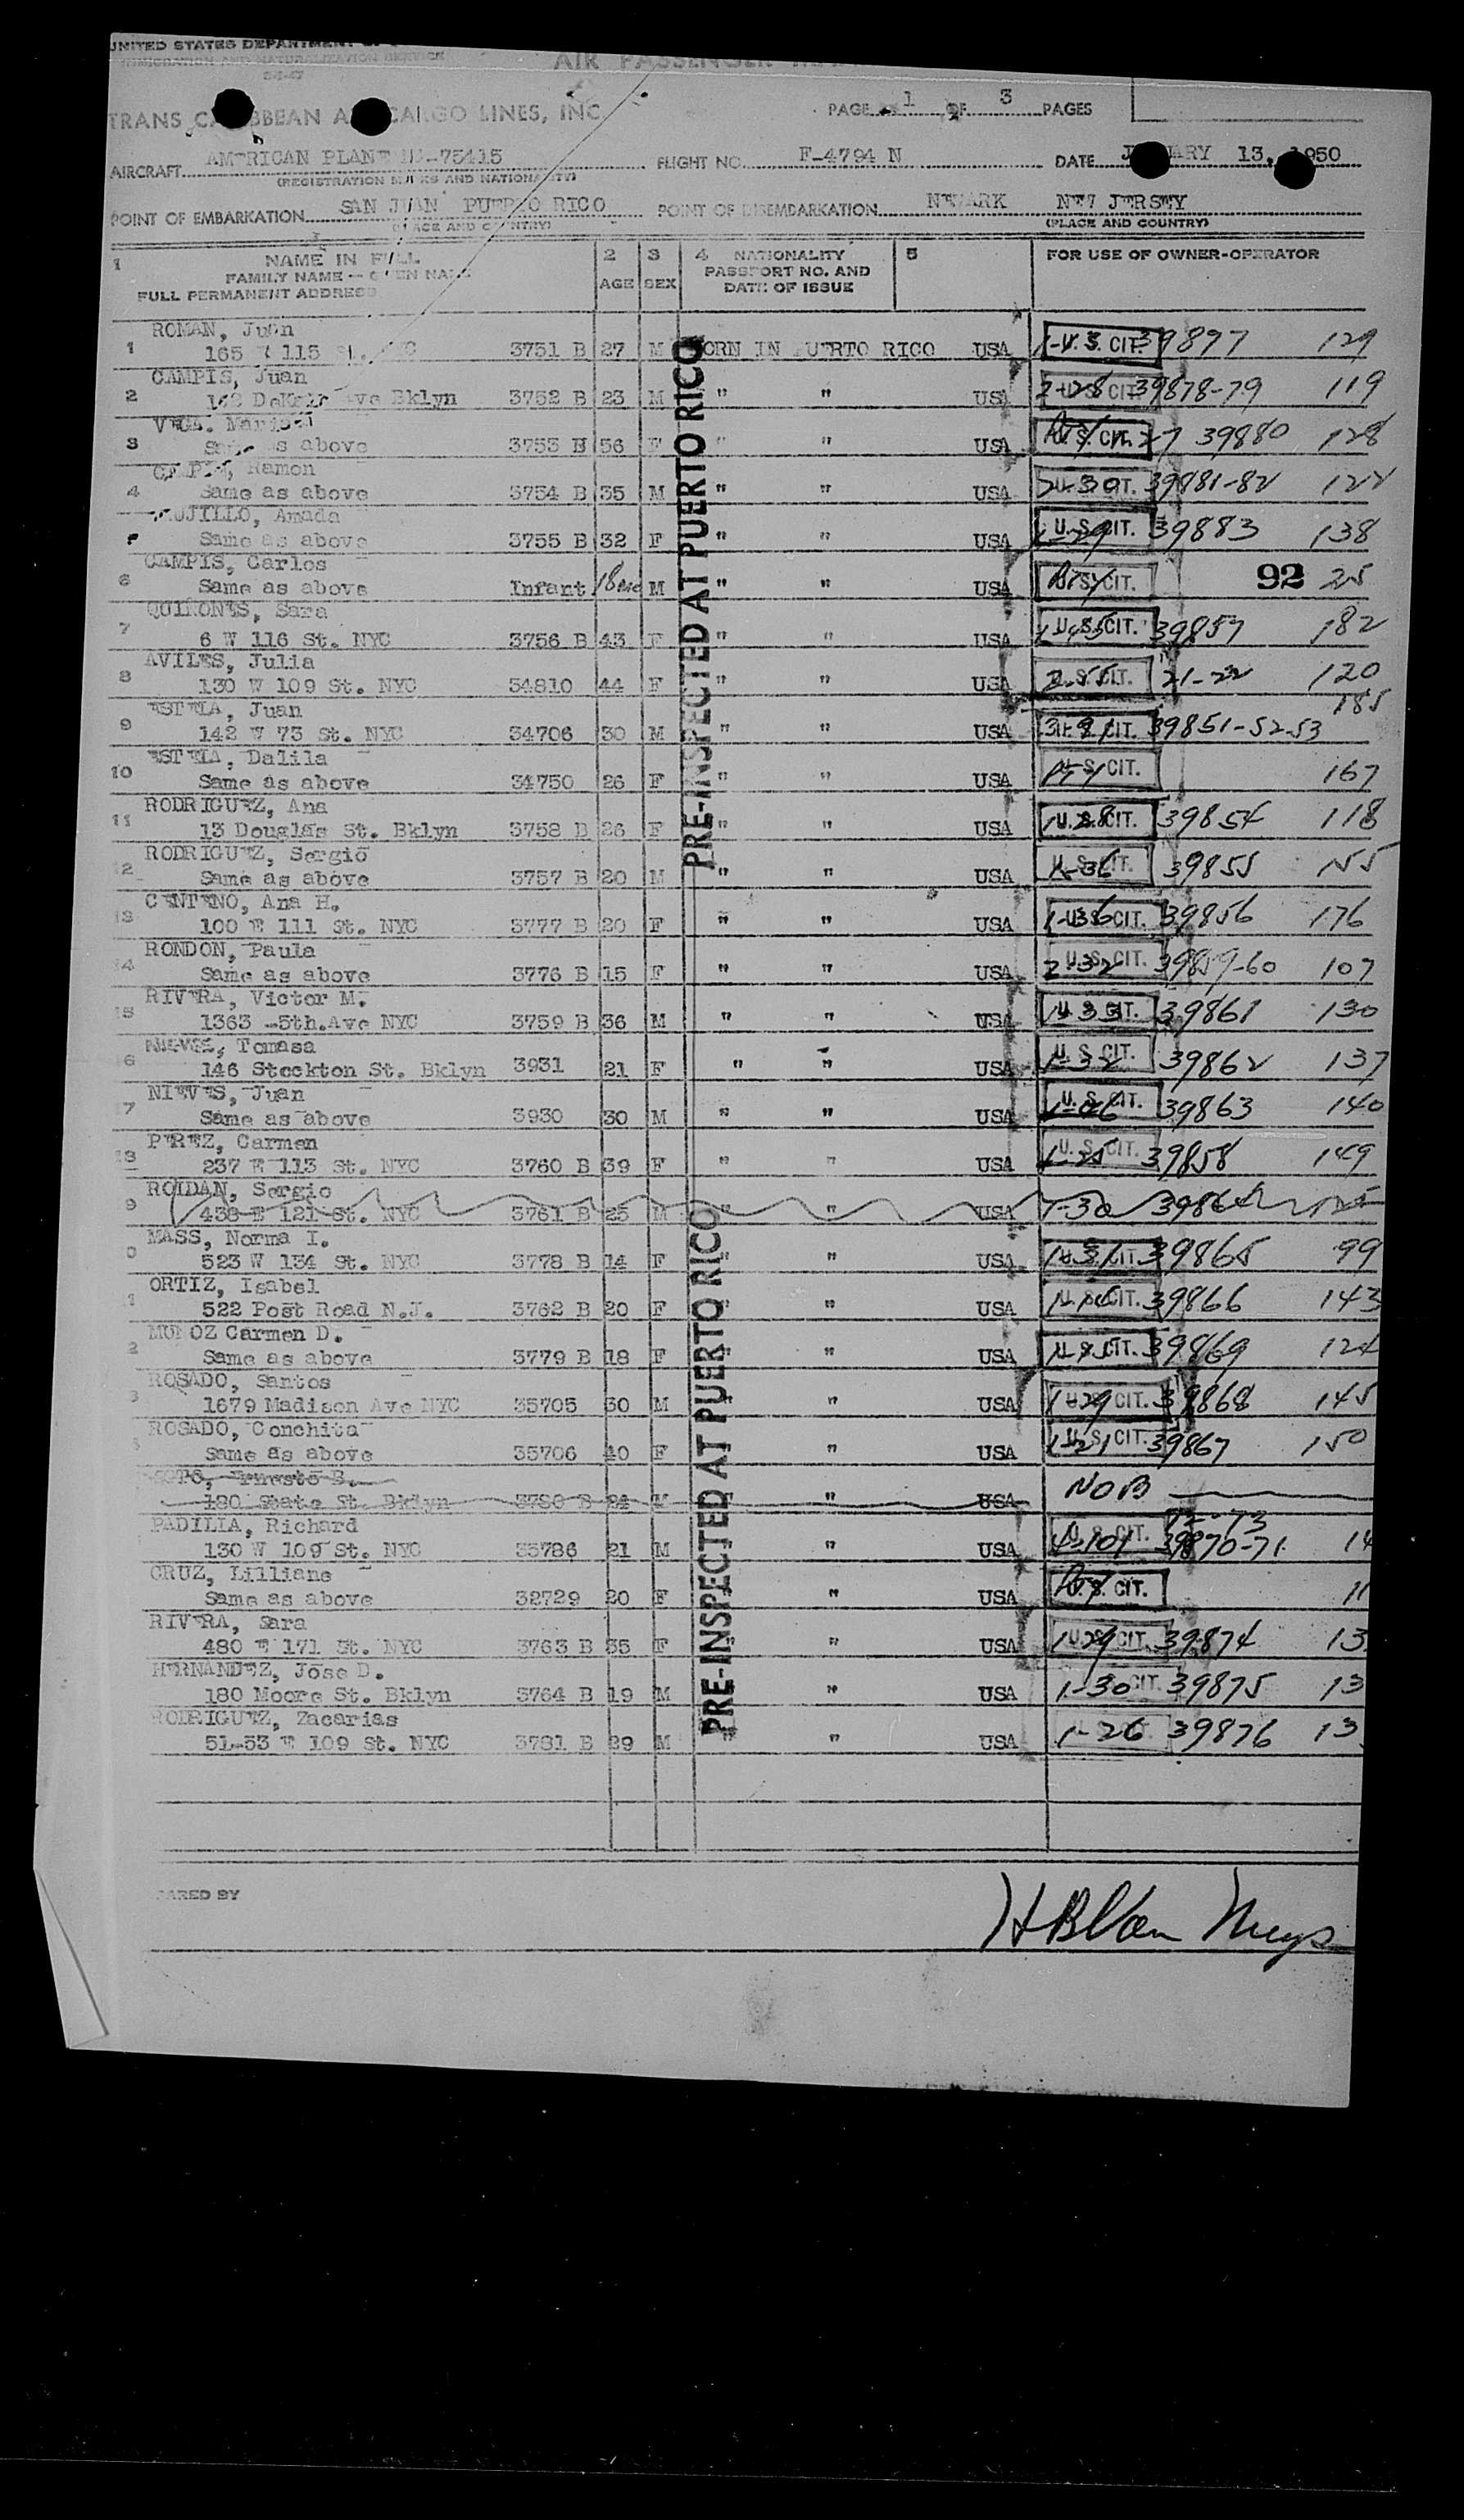 UNITED STATES DEPARTMENT OF
IMMIGRATION AND NATURALIZATION SERVICE
AIR PASSENGER
TRANS CARIBBEAN AIR CARGO LINES, INC.
PAGE 1 OF 3 PAGES
AIRCRAFT AMERICAN PLANE 75415 FLIGHT NO. F-4794 N DATE JANUARY 13, 1950
(REGISTRATION MARKS AND NATIONALITY)
POINT OF EMBARKATION SAN JUAN PUERTO RICO POINT OF DISEMBARKATION NEWARK NEW JERSEY
(PLACE AND COUNTRY) (PLACE AND COUNTRY)
1 NAME IN FULL 2 3 4 NATIONALITY 5 FOR USE OF OWNER-OPERATOR
FAMILY NAME -- GIVEN NAME AGE SEX PASSPORT NO. AND
FULL PERMANENT ADDRESS DATE OF ISSUE
PRE-INSPECTED AT PUERTO RICO
ROMAN, Juan
1 165 E 115 St. NYC 3751 B 27 M BORN IN PUERTO RICO USA U.S. CIT. 39897 129
CAMPIS, Juan
2 Ave Bklyn 3752 B 23 M " " USA U.S. CIT. 39878-79 119
VEGA, Maria
3 Same as above 3753 B 56 F " " USA U.S. CIT. 39880 128
CAMPIS, Ramon
4 Same as above 3754 B 35 M " " USA U.S. CIT. 39881-82 122
TRUJILLO, Amada
Same as above 3755 B 32 F " " USA U.S. CIT. 39883 138
CAMPIS, Carlos
6 Same as above Infant M " " USA U.S. CIT. 92 25
QUIÑONES, Sara
7 6 W 116 St. NYC 3756 B 43 F " " USA U.S. CIT. 39857 182
AVILES, Julia
8 130 W 109 St. NYC 34810 44 F " " USA U.S. CIT. 21-22 120
ESTELA, Juan 185
9 142 W 73 St. NYC 34706 30 M " " USA U.S. CIT. 39851-52-53
ESTELA, Dalila
10 Same as above 34750 26 F " " USA U.S. CIT. 167
RODRIGUEZ, Ana
11 13 Douglas St. Bklyn 3758 B 26 F " " USA U.S. CIT. 39854 118
RODRIGUEZ, Sergio
12 Same as above 3757 B 20 M " " USA U.S. CIT. 39855 155
CENTENO, Ana H.
13 100 E 111 St. NYC 3777 B 20 F " " USA U.S. CIT. 39856 176
RONDON, Paula
14 Same as above 3776 B 15 F " " USA U.S. CIT. 39859-60 107
RIVERA, Victor M.
15 1363 -5th.Ave NYC 3759 B 36 M " " USA U.S. CIT. 39861 130
NIEVES, Tomasa
6 146 Stockton St. Bklyn 3931 21 F " " USA U.S. CIT. 39862 137
NIEVES, Juan
7 Same as above 3930 30 M " " USA U.S. CIT. 39863 140
PEREZ, Carmen
18 237 E 113 St. NYC 3760 B 39 F " " USA U.S. CIT. 39858 149
ROLDAN, Sergio
9 438 E 121 St. NYC 3761 B 25 M " " USA 1-30 39864
MASS, Norma I.
0 523 W 134 St. NYC 3778 B 14 F " " USA U.S. CIT. 39865 99
ORTIZ, Isabel
1 522 Post Road N.J. 3762 B 20 F " " USA U.S. CIT. 39866 143
MUÑOZ Carmen D.
2 Same as above 3779 B 18 F " " USA U.S. CIT. 39869 124
ROSADO, Santos
3 1679 Madison Ave NYC 35705 30 M " " USA U.S. CIT. 39868 145
ROSADO, Conchita
Same as above 35706 40 F " " USA U.S. CIT. 39867 150
SOTO, Ernesto
180 State St. Bklyn 3780 B 24 M " " USA NOB
PADILLA, Richard 72-73
130 W 109 St. NYC 35786 21 M " USA U.S. CIT. 39870-71 14
CRUZ, Lilliane
Same as above 32729 20 F " USA U.S. CIT. 11
RIVERA, Sara
480 E 171 St. NYC 3763 B 35 F " " USA U.S. CIT. 1-29 39874 13
HERNANDEZ, Jose D.
180 Moore St. Bklyn 3764 B 19 M " USA 1-30 CIT. 39875 13
RODRIGUEZ, Zacarias
51-53 E 109 St. NYC 3781 B 29 M " " USA 1-26 39876 13
PRE-INSPECTED AT PUERTO RICO
PARED BY
H B Van Nuys